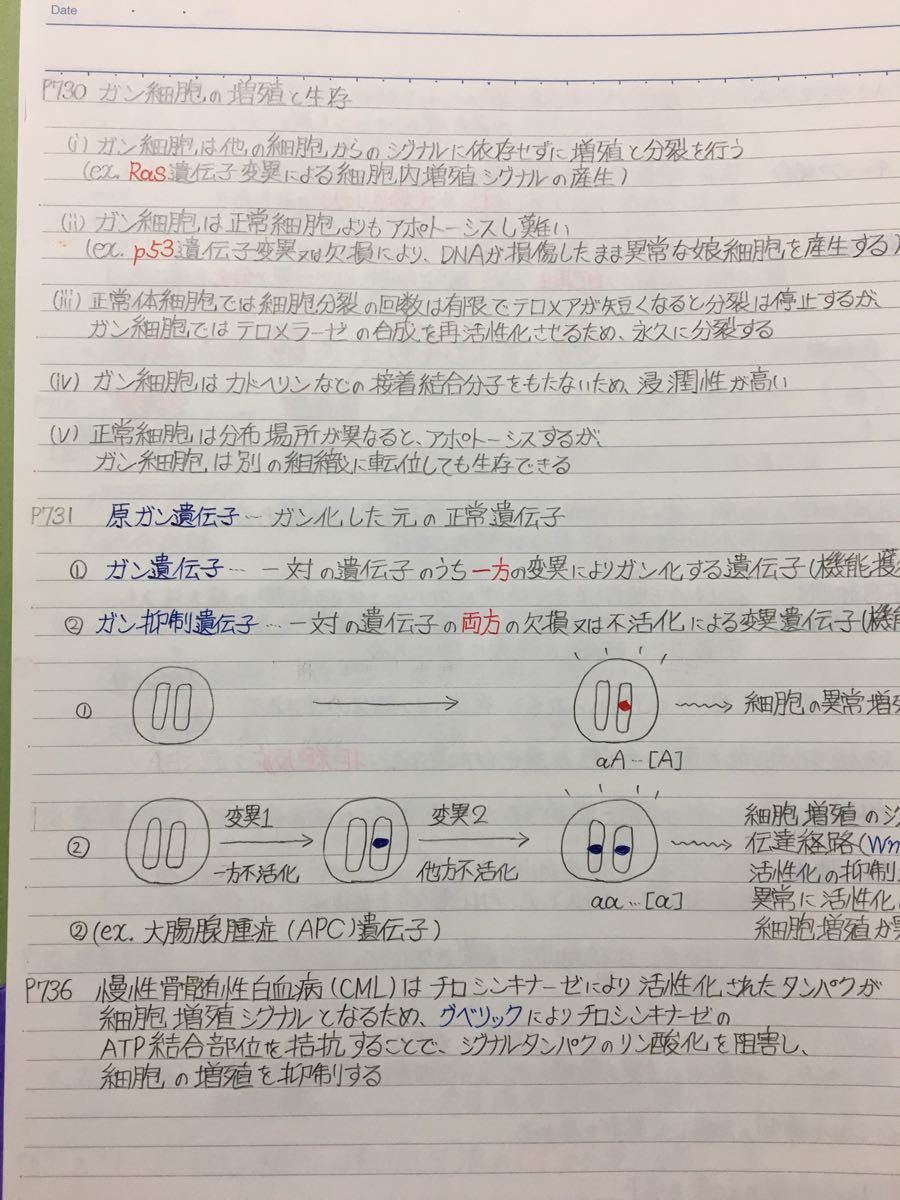 Date
P730 ガン細胞の増殖と生存
(i) ガン細胞は他の細胞からのシグナルに依存せずに増殖と分裂を行う
(ex. Ras遺伝子変異による細胞内増殖シグナルの産生)
(ii) ガン細胞は正常細胞よりもアポトーシスし難い
(ex. p53遺伝子変異又は欠損により、DNAが損傷したまま異常な娘細胞を産生する)
(iii) 正常体細胞では細胞分裂の回数は有限でテロメアが短くなると分裂は停止するが、
ガン細胞ではテロメラーゼの合成を再活性化させるため、永久に分裂する
(iv) ガン細胞はカドヘリンなどの接着結合分子をもたないため、浸潤性が高い
(v) 正常細胞は分布場所が異なると、アポトーシスするが、
ガン細胞は別の組織に転位しても生存できる
P731 原ガン遺伝子…ガン化した元の正常遺伝子
① ガン遺伝子… 一対の遺伝子のうち一方の変異によりガン化する遺伝子(機能獲
② ガン抑制遺伝子…一対の遺伝子の両方の欠損又は不活化による変異遺伝子(機能
① 細胞の異常増殖
aA…[A]
② 変異1 変異2 細胞増殖のシ
一方不活化 他方不活化 伝達経路(Wn
活性化の抑制
aa…[a] 異常に活性化
② (ex. 大腸腺腫症(APC)遺伝子) 細胞増殖が
P736 慢性骨髄性白血病(CML)はチロシンキナーゼにより活性化されたタンパクが
細胞増殖シグナルとなるため、グベリックによりチロシンキナーゼの
ATP結合部位を拮抗することで、シグナルタンパクのリン酸化を阻害し、
細胞の増殖を抑制する